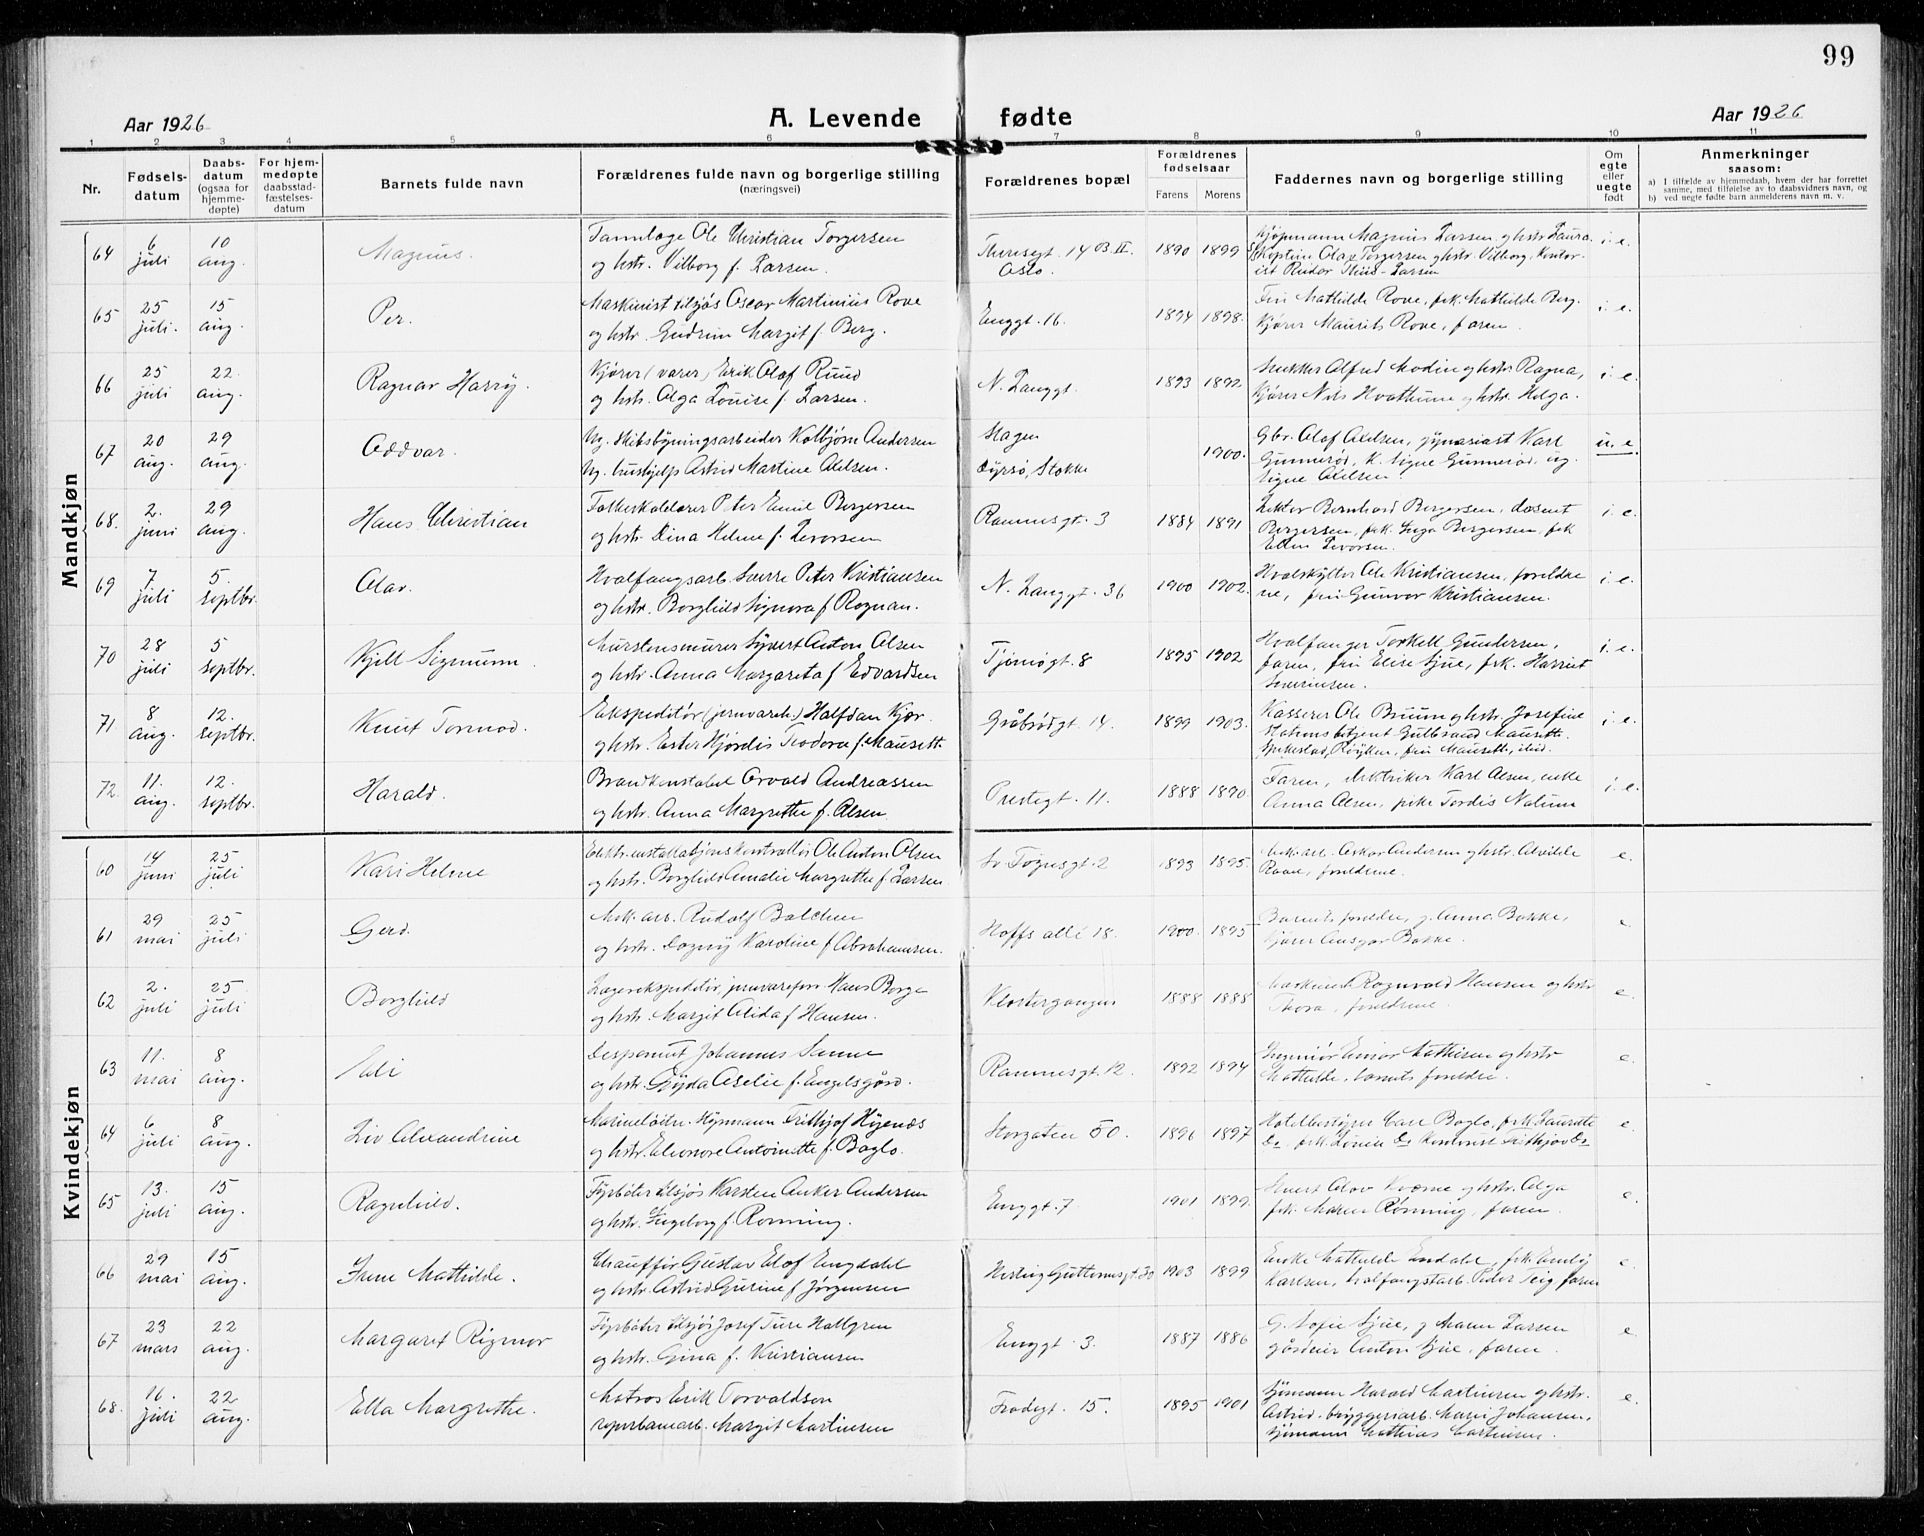 99
Aar 1926 A. Levende fødte Aar 1926
1 2 3 4 5 6 7 8 9 10 11
Nr. Fødselsdatum Daabsdatum (ogsaa for hjemmedøpte) For hjemmedøpte daabsstadfæstelsesdatum Barnets fulde navn Forældrenes fulde navn og borgerlige stilling (næringsvei) Forældrenes bopæl Forældrenes fødselsaar Farens Morens Faddernes navn og borgerlige stilling Om egte eller uegte født Anmerkninger saasom:
a) I tilfælde av hjemmedaab, hvem der har forrettet samme, med tilføielse av to daabsvidners navn, og
b) ved uegte fødte barn anmelderens navn m. v.
Mandkjøn
64 6 juli 10 aug. Magnus. Tannlæge Ole Christian Torgersen
og hstr. Vilborg f. Larsen. Theresegt. 14 Oslo. 1890 1899 Kjøpmann Magnus Larsen og hstr. Laura
Olav Torgersen og hstr. Vilborg, Larsen i. e.
65 25 juli. 15 aug. Per. Maskinist tilsjøs Oscar Martinius Rove
og hstr. Gudrun Margit f. Berg. Enggt. 16. 1894 1898. Fru Mathilde Rove, frk. Mathilde Berg.
Kjører Maurits Rove, faren. i. e.
66 25 juli 22. aug. Ragnar Harry. Kjører (varer) Erik Olaf Ruud
og hstr. Olga Louise f. Larsen. N. Langgt. 1893 1892. Snekker Alfred Modin og hstr. Ragna,
Kjører Nils Hvathume og hstr. Helga. i. e.
67 20 aug. 29 aug. Oddvar. Ug. skibsbygningsarbeider Kolbjørn Andersen
Ug. hushjelp Astrid Martine Olsen. Slagen
Stokke 1900. Gbr. Olaf Olsen, gymnasiast Karl
Gunnerød, K. Signe Gunnerød, ug.
Signe Olsen. u. e.
68. 2. juni 29 aug. Hans Christian Folkeskolelærer Peter Emil Bergersen
og hstr. Dina Helene f. Levorsen Ramnesgt. 3 1884 1891 Lektor Bernhard Bergersen, dosent
Bergersen, frk. Inga Bergersen, frk
Ellen Levorsen. i. e.
69 7. juli 5. septbr. Olav. Hvalfangsarb. Sverre Peter Kristiansen
og hstr. Borghild Signora f. Rognan. N. Langgt. 36 1900 1902. Hvalskytter Ole Kristiansen, foreldre
ne, fru Gunvor Kristiansen. i. e.
70 28 juli 5 septbr. Kjell Sigmunn. Murstensmurer Syvert Anton Olsen
og hstr. Anna Margareta f. Edvardsen Tjømøgt. 8 1895 1902 Hvalfanger Torkell Gundersen,
faren, fru Elise Sjue, frk. Harriet
Severinsen. i. e.
71 8 aug. 12. septbr. Knut Tormod. Ekspeditør (jernvareh.) Halfdan Kjær.
og hstr. Ester Hjørdis Teodora f. Mausett. Gråbrødgt. 14. 1899 1903. Kasserer Ole Bruum og hstr. Josefine
Stationsbetjent Gulbrand Mausett.
Spikestad, Røyken, fru Mausett, ibid. i. e.
72. 11. aug. 12. septbr. Harald. Brandkonstabel Orvald Andreassen
og hstr. Anna Margrethe f. Olsen. Prestegt. 11. 1888 1890. Faren, elektriker Karl Olsen, enke
Anna Olsen, pike Tordis Natum i. e.
Kvindekjøn
60 14 juni 25 juli Kari Helene Elektr. installasjonskontrollør Ole Anton Olsen
og hstr. Borghild Amalie Margrethe f. Larsen Sv. Foynsgt. 2 1893 1895. Mek. arb. Oskar Andersen og hstr. Alvilde
foreldrene. e.
61 29 mai 25 juli Gerd. Mek. arb. Rudolf Balchen
og hstr. Dagny Karoline f. Abrahamsen. Hoffs alle 18. 1900. 1895 Barnets foreldre, g. Anna Bakke,
Kjører Ansgar Bakke. e
62 2. juli 25 juli Borghild Lagerekspeditør, jernvareforr. Hans Borge
og hstr. Margit Alida f. Hansen. Klostergangen 1888 1888 Maskinist Ragnvald Hansen og hstr
Thora, foreldrene. e.
63 11. mai 8 aug. Eli Johannes Senne
og hstr. Gyda Aselie f. Engelsgård. Ramnesgt. 12. 1892 1894 Ingeniør Einar Mathisen og hstr
Mathilde, barnets foreldre. e.
64 6 juli 8 aug. Liv Alexandrine Hymann Frithjof Høyenæs
og hstr. Eleonore Antoinette f. Boglo. Storgaten 50. 1896 1897 Hotelbestyrer Carl Boglo, frk. Laurette
Do, frk. Do Frithjov Do e.
65 13. juli 15 aug. Ragnhild. Fyrbøter tilsjøs Karsten Anker Andersen
og hstr. Ingeborg f. Rønning. Enggt. 7 1901 1899. Olav Kværne og hstr. Olga
frk. Maren Rønning, faren. e.
66 29 mai 15 aug. Irene Mathilde. Chauffør Gustav Elof Engdahl
og hstr. Astrid Gurine f. Jørgensen Hertug Guttormsgt. 30 1903 1899 Enke Mathilde Engdahl, frk. Emily
Karlsen, hvalfangstarb. Peder Teig, faren e.
67 23 mars 22 aug. Margaret Rigmor Fyrbøter tilsjøs Josef Ture Hallgren
og hstr. Gina f. Kristiansen Enggt. 3. 1887 1886 G. Sofie Sjue, g. Larsen
gårdeier Anton Sjue, faren. e.
68. 16. juli 22 aug. Ella Margrethe. Matros Erik Torvaldson
reperbanearb. Margit Martinsen Frodegt. 15. 1895 1901 Sjømann Harald Martinsen og hstr.
Astrid, bryggeriarb. Marie Johansen,
sjømann Mathias Martinsen. e.